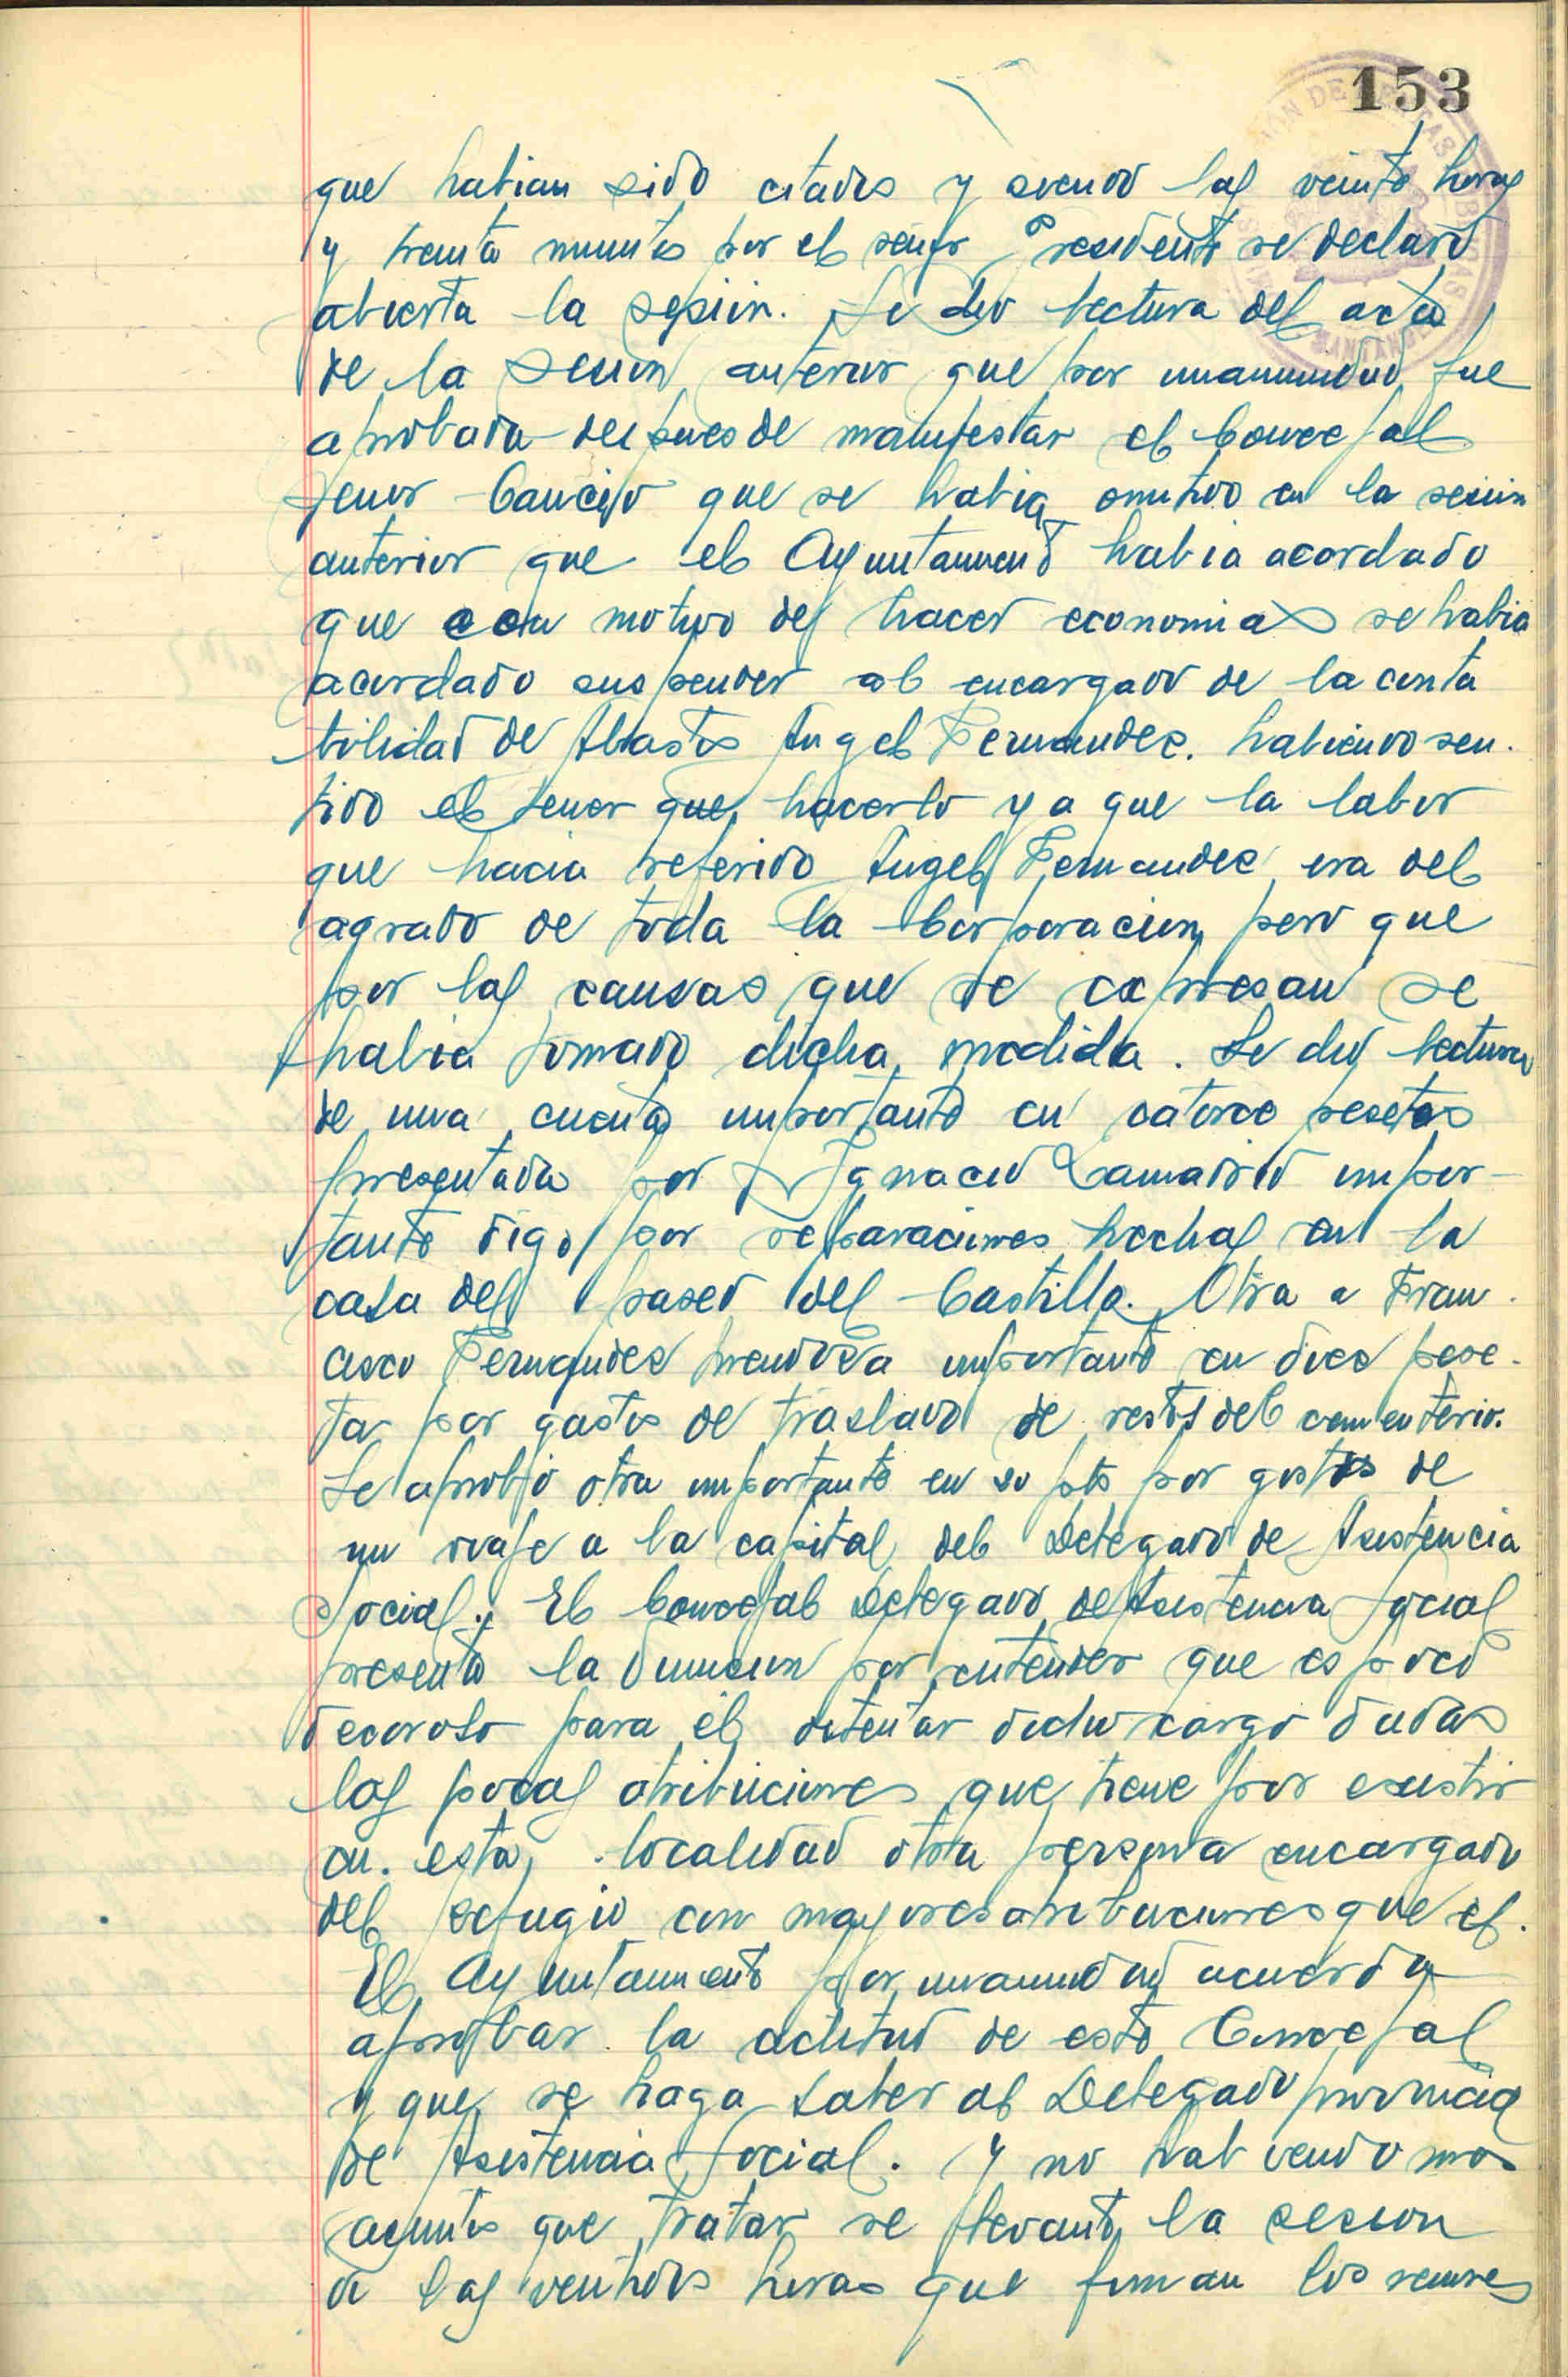 153
que habian sido citados y siendo las veinte horas
y treinta minutos por el señor Presidente se declaró
abierta la sesión. Se dio lectura del acta
de la sesion anterior que por unanimidad fue
aprobada despues de manifestar el Concejal
señor Canceijo que se habia omitido en la sesion
anterior que el Ayuntamiento habia acordado
que con motivo de hacer economias se habia
acordado suspender al encargado de la conta
bilidad de Abastos Angel Fernandez. habiendo sen-
tido el tener que hacerlo ya que la labor
que hacia referido Angel Fernandez era del
agrado de toda la Corporacion pero que
por las causas que se expresan se
habia tomado dicha medida. Se dio lectura
de una cuenta importante en catorce pesetas
presentada por Ignacio Lamadrid impor-
tante digo por reparaciones hechas en la
casa del paseo del Castillo. Otra a Fran-
cisco Fernandez Mendoza importante en doce pese-
tas por gastos de traslado de restos del cementerio.
Se aprobó otra importante en 20 pts por gastos de
un viaje a la capital del Delegado de Asistencia
Social. El Concejal Delegado de Asistencia Social
presentó la dimision por entender que es poco
decoroso para él detentar dicho cargo dadas
las pocas atribuciones que tiene por existir
en esta localidad otra persona encargado
del refugio con mayores atribuciones que el.
El Ayuntamiento por unanimidad acuerda
aprobar la actitud de este Concejal
y que se haga saber al Delegado provincial
de Asistencia Social. Y no habiendo mas
asuntos que tratar se levantó la sesion
a las veintidos horas que firman los señores